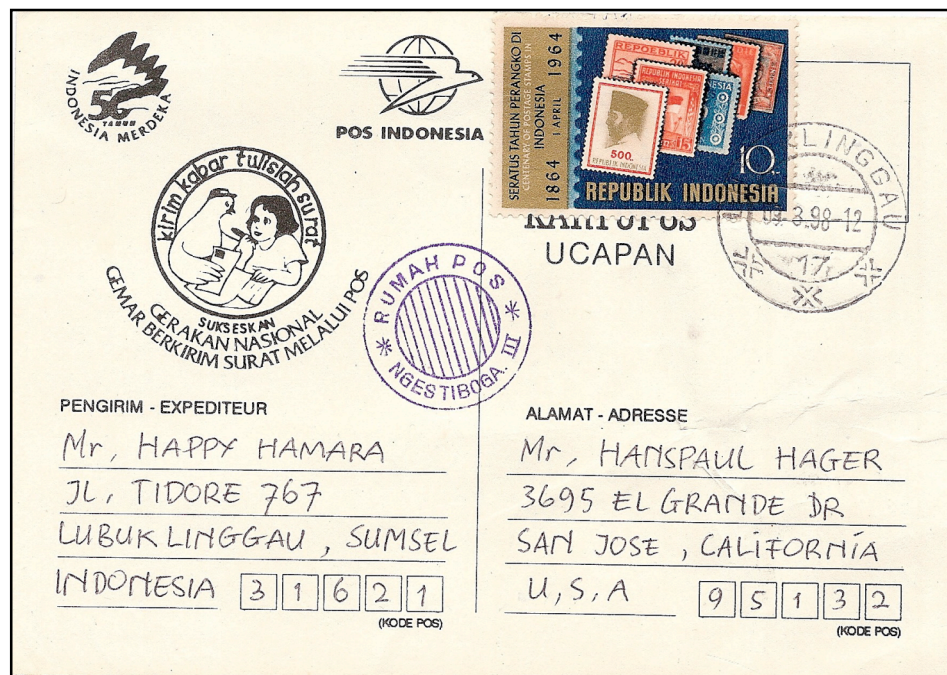 INDONESIA MERDEKA
50
TAHUN
POS INDONESIA
SERATUS TAHUN PERANGKO DI
CENTENARY OF POSTAGE STAMPS IN
INDONESIA
1 APRIL
1864 1964
REPOEBLIK
REPUBLIK INDONESIA
SERIKAT
15
500.
REPUBLIK INDONESIA
10
REPUBLIK INDONESIA
LINGGAU
3.98-12
17
KARTU POS
UCAPAN
kirim kabar tulislah surat
SUKSESKAN
GERAKAN NASIONAL
GEMAR BERKIRIM SURAT MELALUI POS
RUMAH POS
NGESTIBOGA. III
PENGIRIM - EXPEDITEUR
Mr, HAPPY HAMARA
JL, TIDORE 767
LUBUK LINGGAU, SUMSEL
INDONESIA 31621
(KODE POS)
ALAMAT - ADRESSE
Mr, HANSPAUL HAGER
3695 EL GRANDE DR
SAN JOSE, CALIFORNIA
U,S,A 95132
(KODE POS)